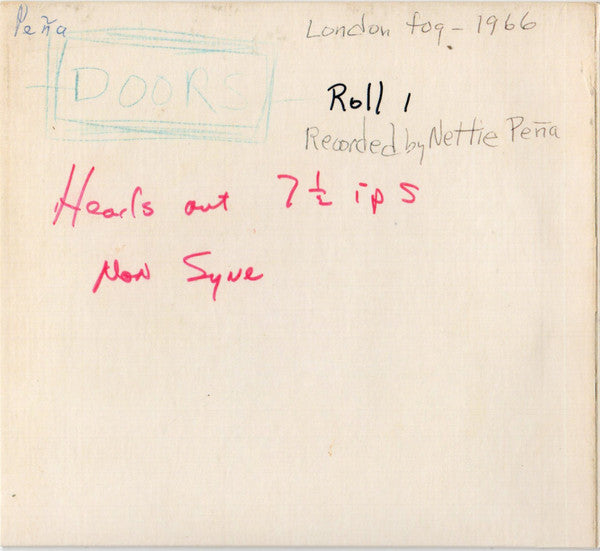 Peña
London fog - 1966
DOORS
Roll 1
Recorded by Nettie Peña
Heads out 7 1/2 ips
Non Sync